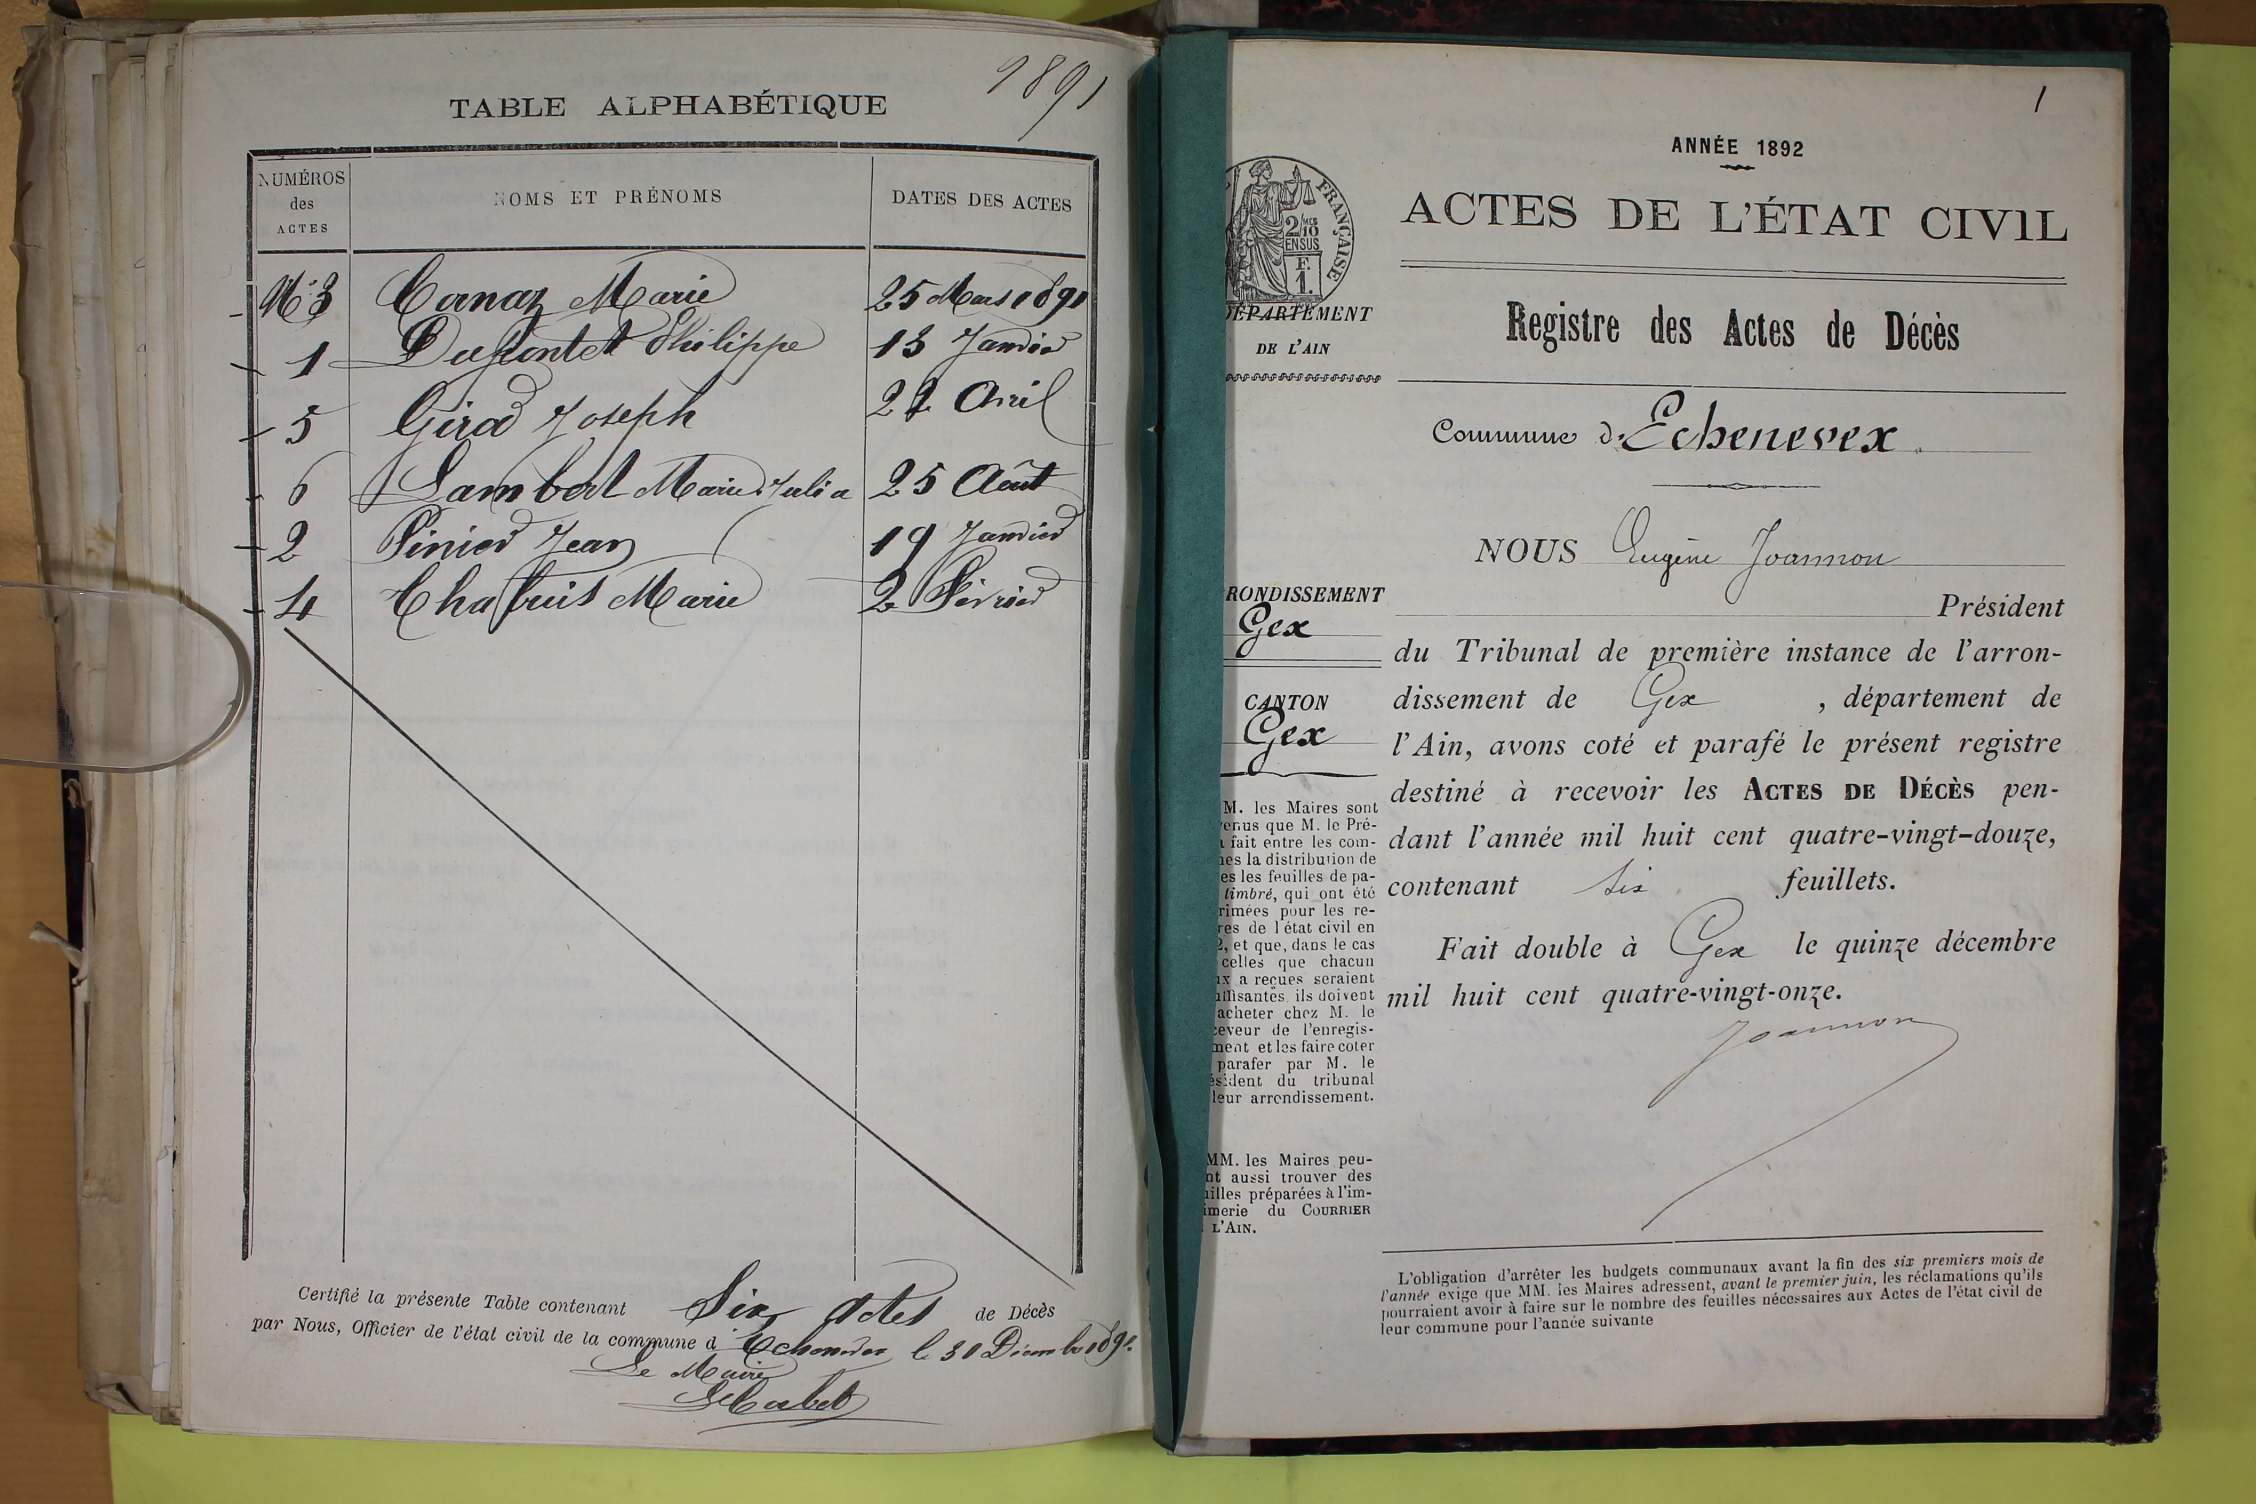 1891
TABLE ALPHABÉTIQUE
NUMÉROS des ACTES
NOMS ET PRÉNOMS
DATES DES ACTES
N° 3 Canaz Marie 25 Mars 1891
1 Dupontet Philippe 13 Janvier
5 Girod Joseph 22 Avril
6 Lambert Marie Julia 25 Août
2 Pinier Jean 19 Janvier
4 Chapuis Marie 2 Février
Certifié la présente Table contenant Six Actes de Décès
par Nous, Officier de l'état civil de la commune d'Echenevex le 31 Décembre 1891.
Le Maire
1
ANNÉE 1892
ACTES DE L'ÉTAT CIVIL
FRANÇAISE
2/10 EN SUS
F. 1.
DÉPARTEMENT
DE L'AIN
Registre des Actes de Décès
Commune d'Echenevex
NOUS Eugène Joannon
Président
RONDISSEMENT
Gex
CANTON
Gex
du Tribunal de première instance de l'arron-
dissement de Gex, département de
l'Ain, avons coté et parafé le présent registre
destiné à recevoir les ACTES DE DÉCÈS pen-
dant l'année mil huit cent quatre-vingt-douze,
contenant six feuillets.
Fait double à Gex le quinze décembre
mil huit cent quatre-vingt-onze.
Joannon
M. les Maires sont
venus que M. le Pré-
fait entre les com-
nes la distribution de
es les feuilles de pa-
timbré, qui ont été
rimées pour les re-
res de l'état civil en
2, et que, dans le cas
celles que chacun
ux a reçues seraient
uffisantes, ils doivent
acheter chez M. le
ceveur de l'enregis-
ment et les faire coter
parafer par M. le
ésident du tribunal
leur arrondissement.
MM. les Maires peu-
nt aussi trouver des
uilles préparées à l'im-
imerie du COURRIER
L'AIN.
L'obligation d'arrêter les budgets communaux avant la fin des six premiers mois de
l'année exige que MM. les Maires adressent, avant le premier juin, les réclamations qu'ils
pourraient avoir à faire sur le nombre des feuilles nécessaires aux Actes de l'état civil de
leur commune pour l'année suivante